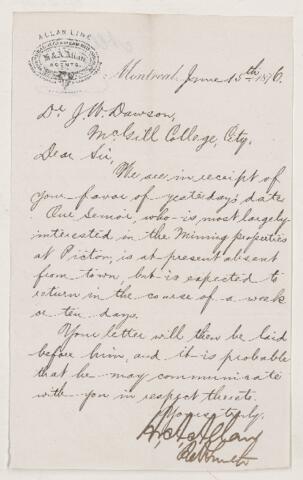 ALLAN LINE
H. & A. Allan
AGENTS.
Montreal, June 15th 1876.
Dr J. W. Dawson,
McGill College, City.
Dear Sir,
We are in receipt of
your favor of yesterday's date
Our senior, who is most largely
interested in the Mining properties
at Pictou, is at present absent
from town but is expected to
return in the course of a week
or ten days.
Your letter will then be laid
before him, and it is probable
that he may communicate
with you in respect thereto.
Yours truly,
H. & A. Allan